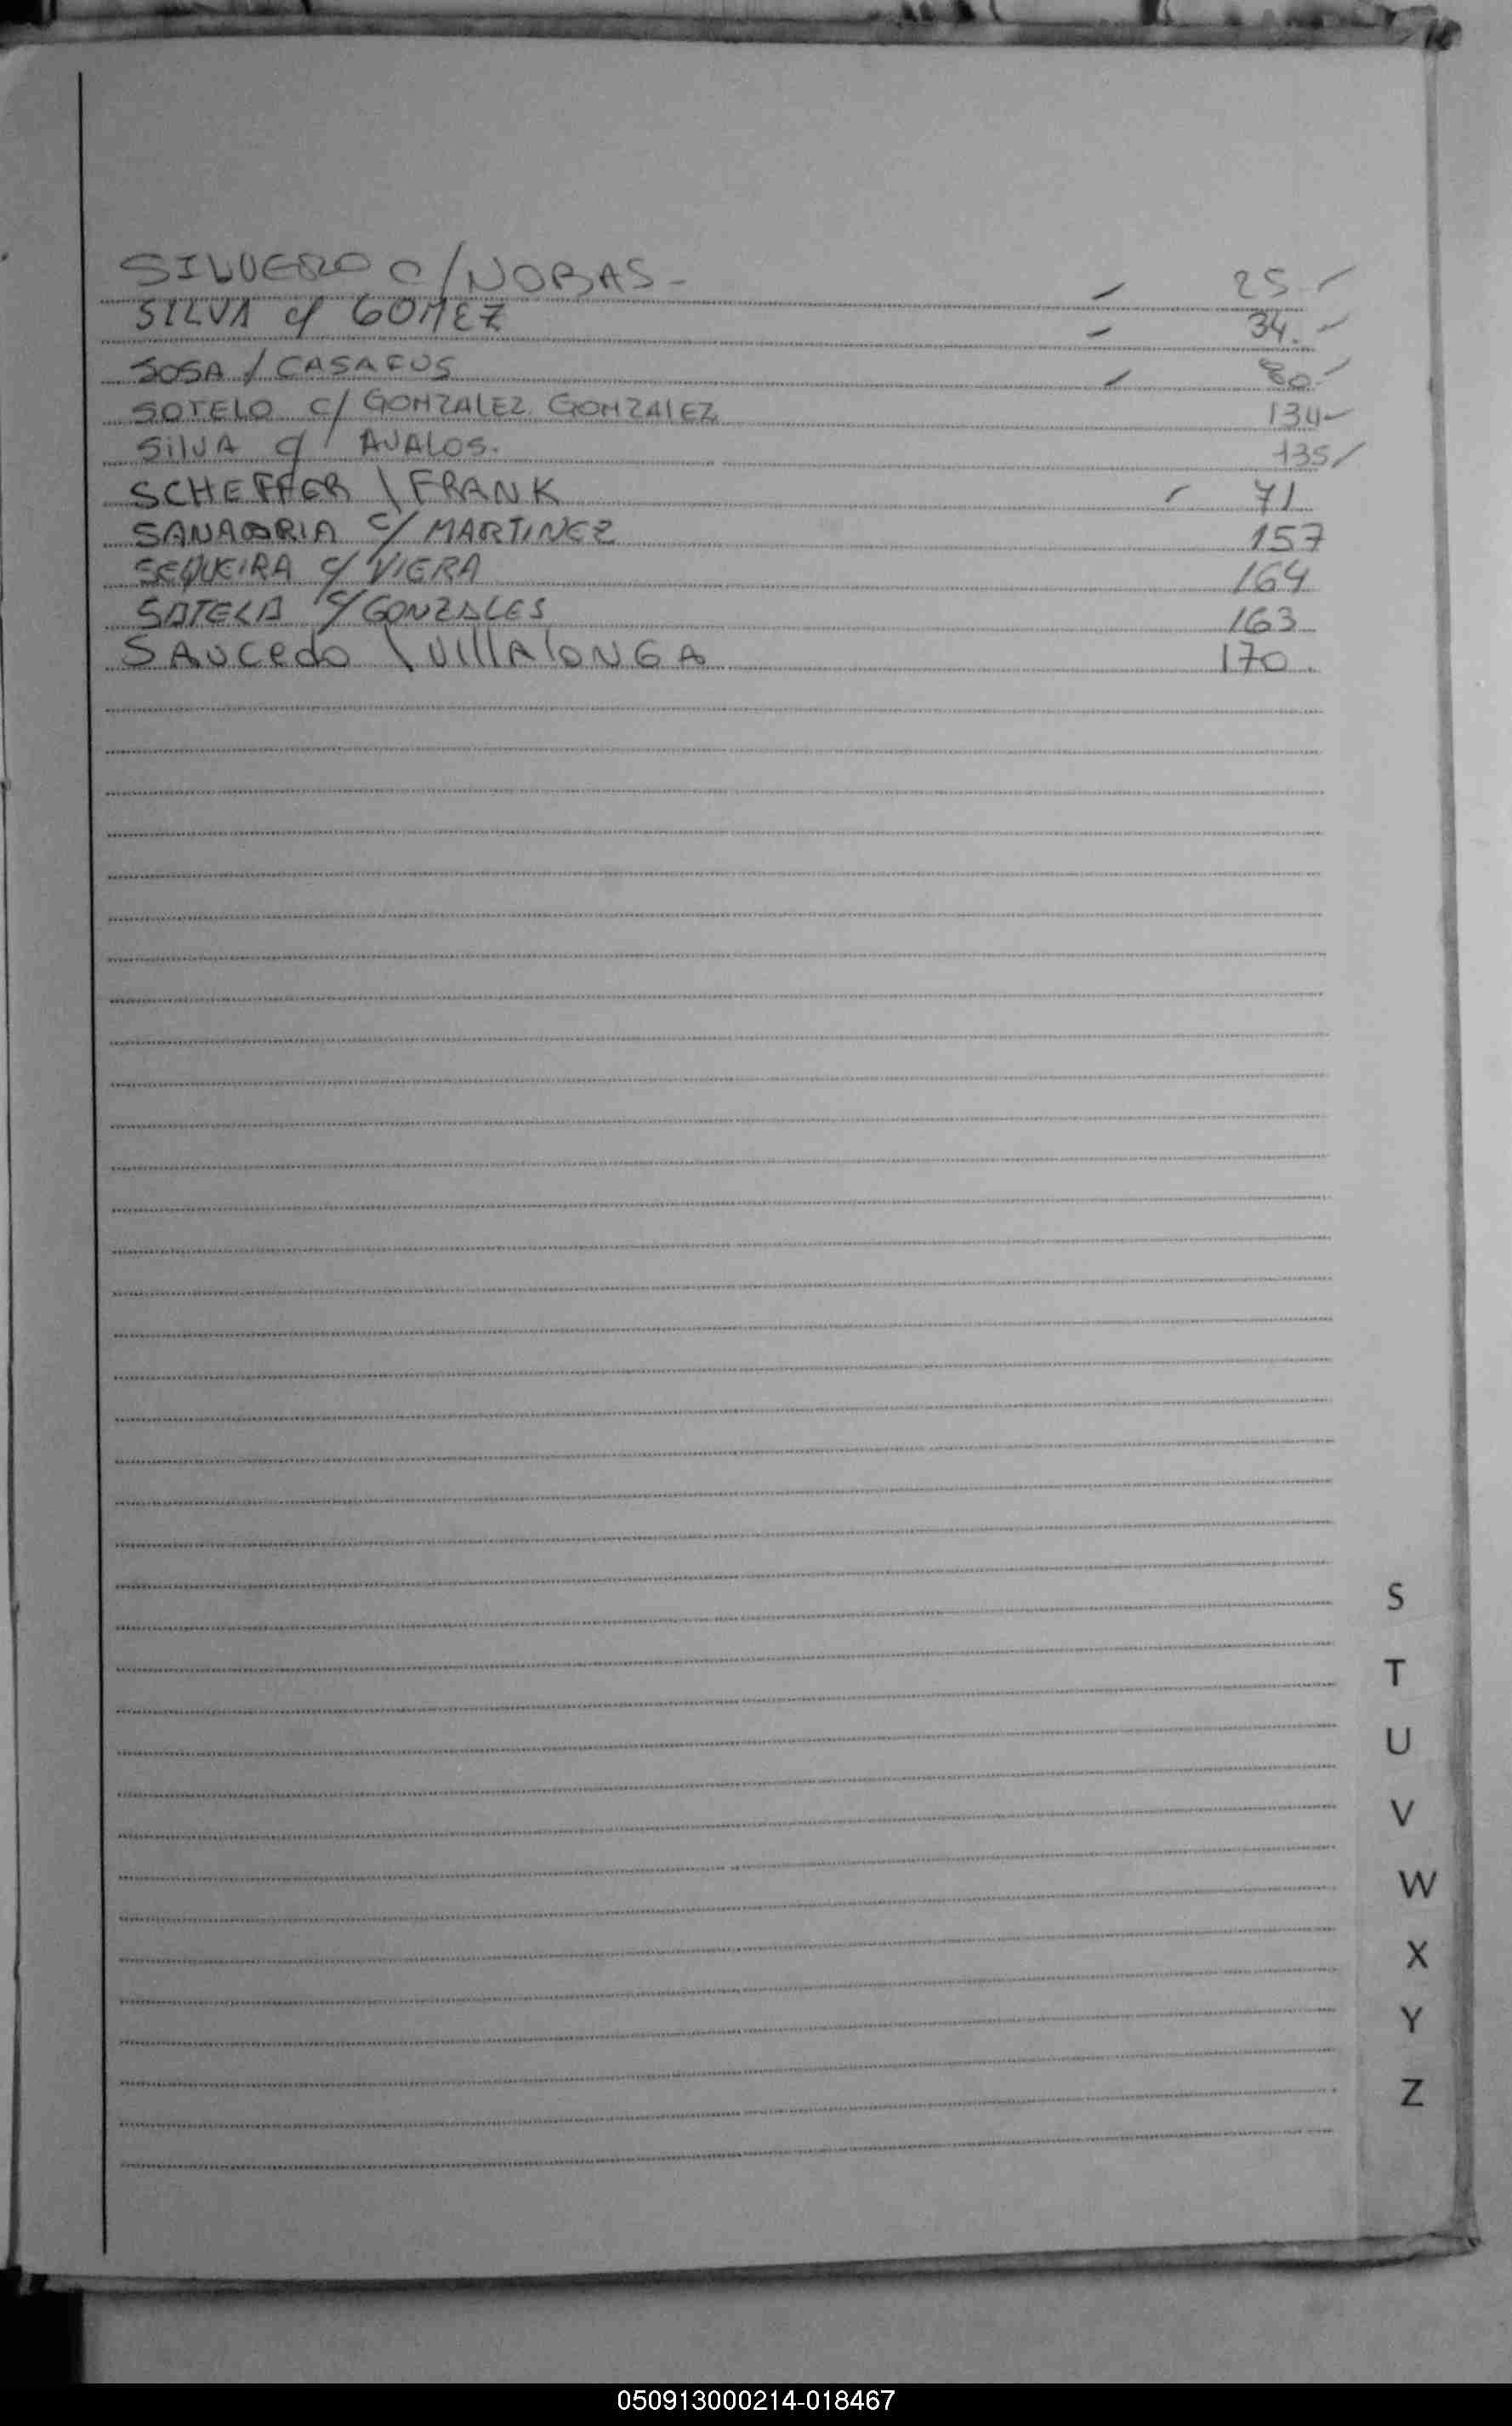 SILVERO C/NOBAS - 25
SILVA c/ GOMEZ 34.
SOSA / CASAFUS 80
SOTELO C/ GONZALEZ GONZALEZ 134
SilVA c/ AVALOS. 135
SCHEFFER \ FRANK 71
SANABRIA C/ MARTINEZ 157
SEQUEIRA C/ VIERA 164
SOTELO C/ GONZALES 163
SAUCedo \ VillAlONGA 170.
S
T
U
V
W
X
Y
Z
050913000214-018467